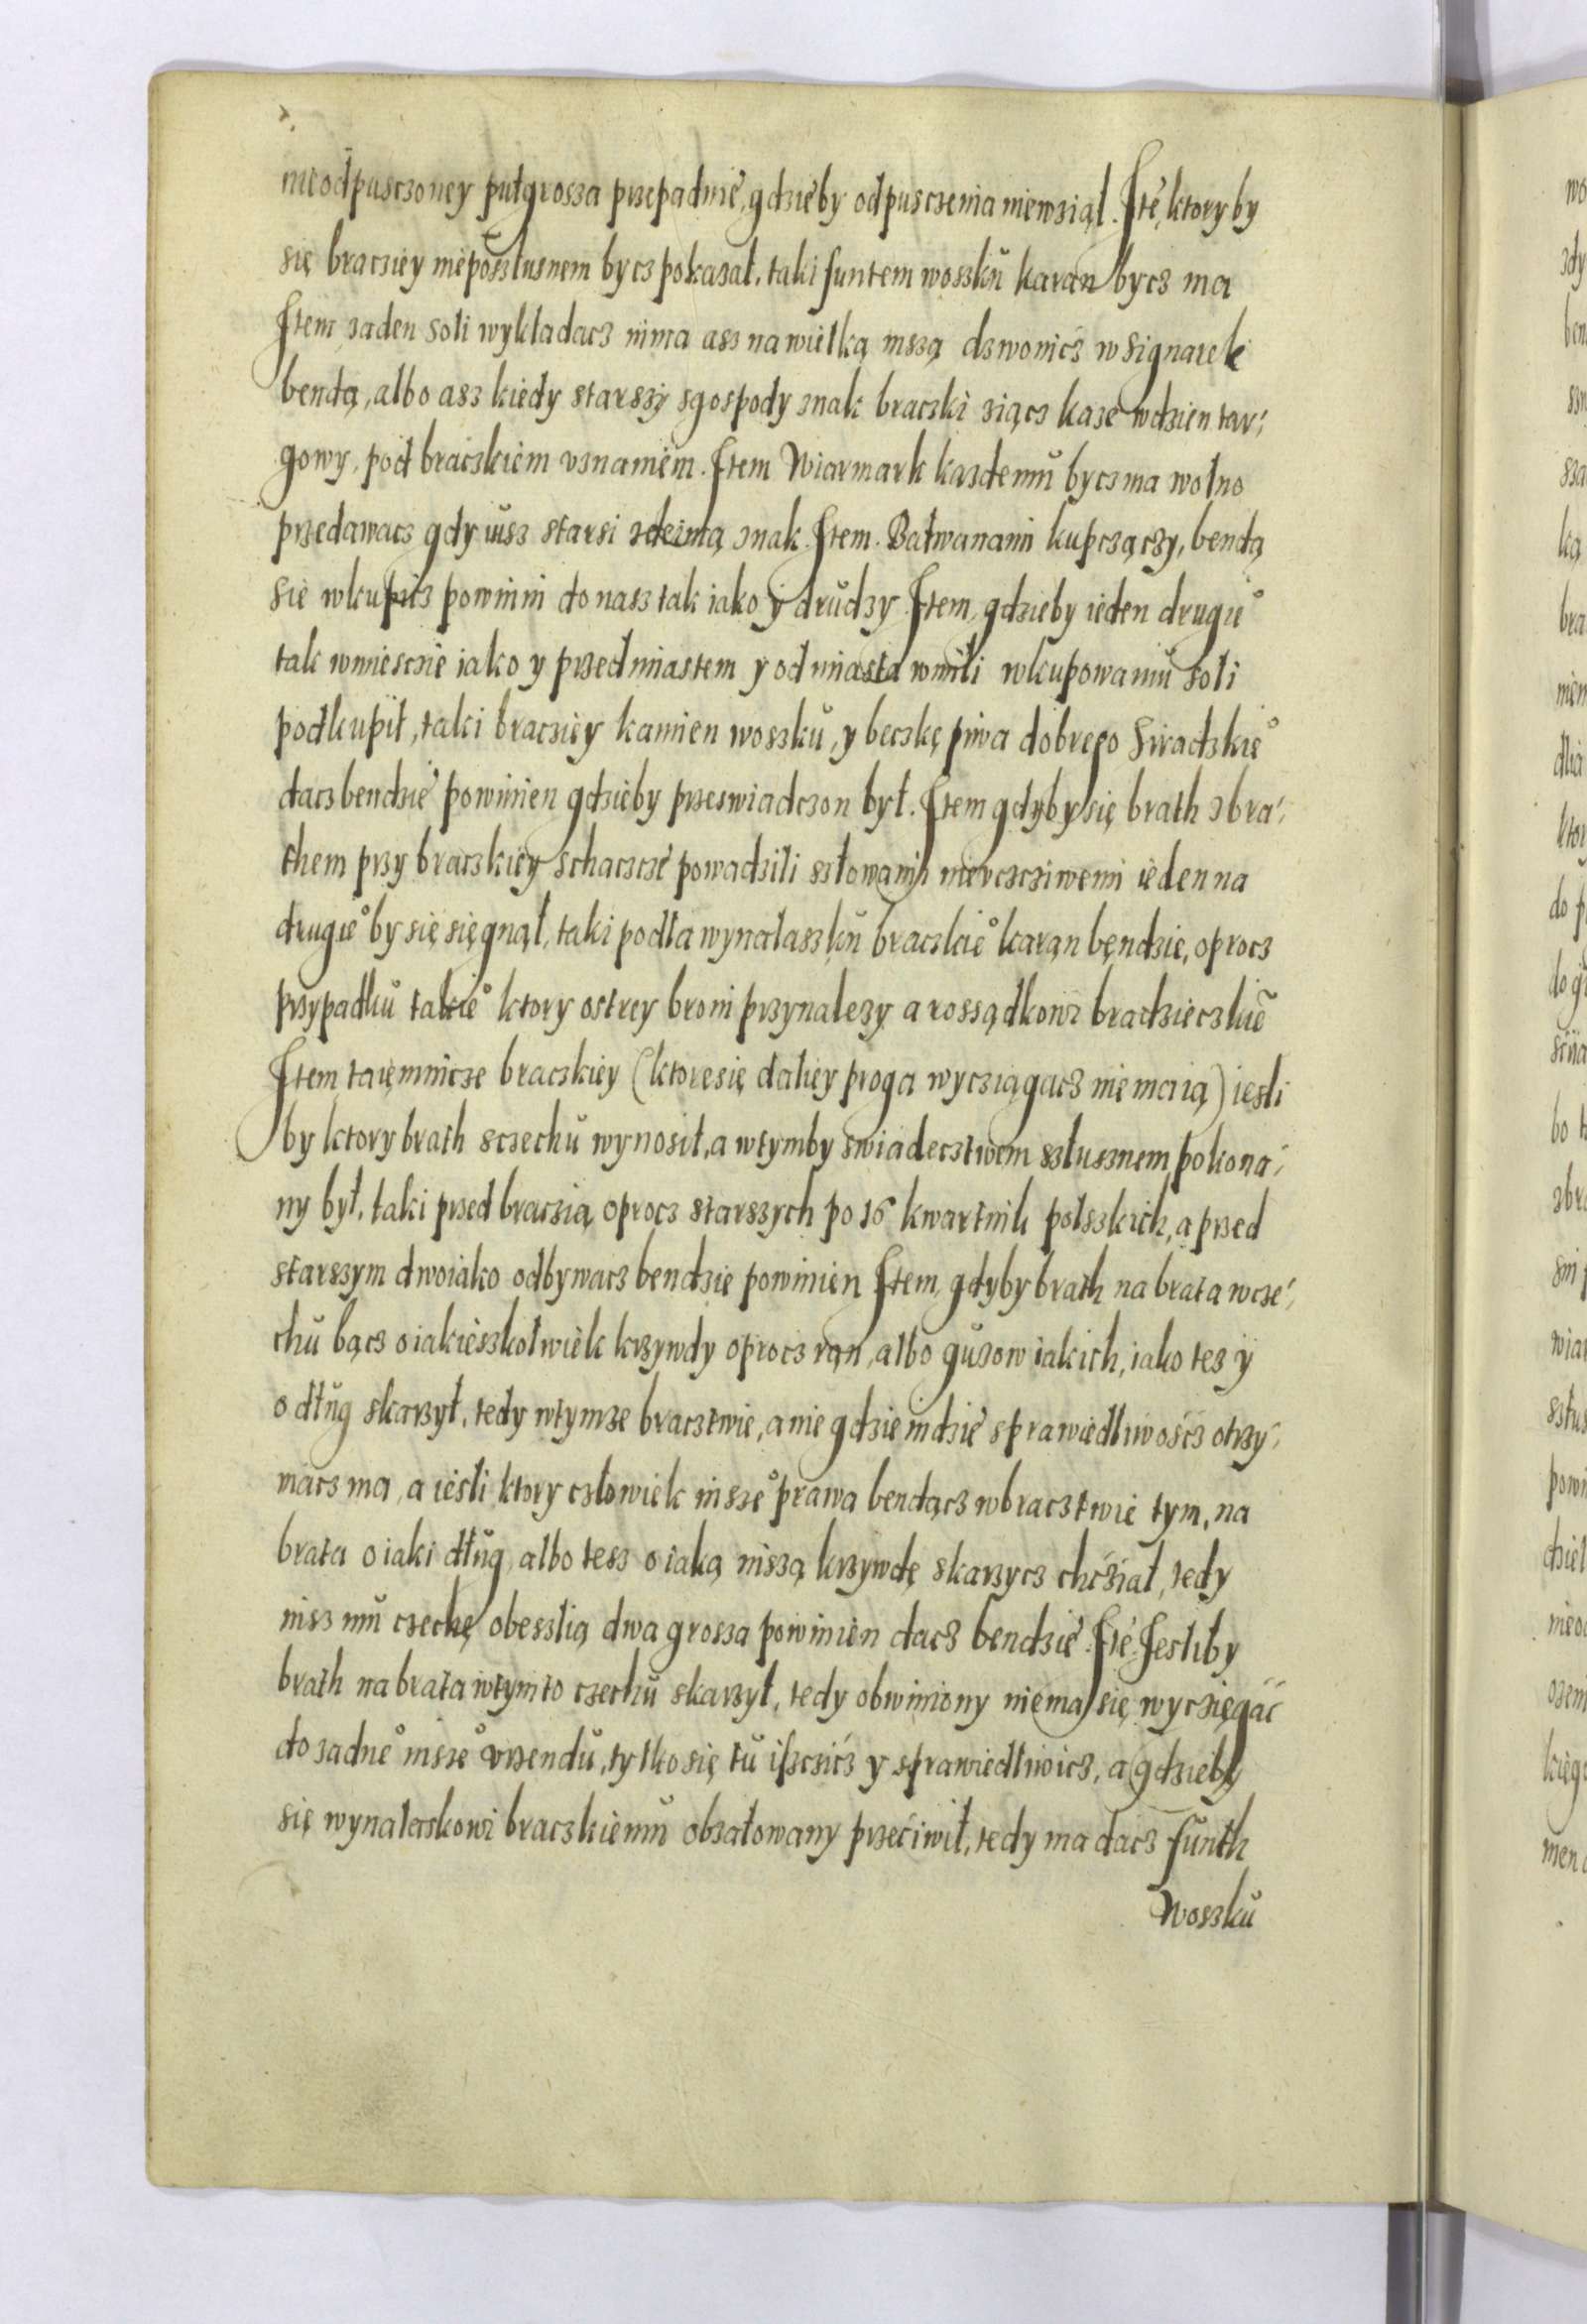 nieodpusczoney pułgrosza przepadnie, gdzieby odpusczenia niewziął. Ite, ktoryby
się braciey nieposzlusnem bycz pokazał, taki funtem woszku karan bycz ma
Item zaden soli wykładacz nima asz na wielką mszą dzwonicz w signarek
bendą, albo asz kiedy starszy z gospody znak braczki ziącz kaze wdzien tar,
gowy, pod braczkiem vznaniem. Item Wiarmark kazdemu bycz ma wolno
przedawacz gdy iusz starsi zdeimą znak. Item. Bałwanami kupczączy, bendą
sie wkupicz powinni do nasz tak iako y drudzy. Item, gdzieby ieden drugie°
tak wmiescie iako y przedmiastem y od miasta wmili wkupowaniu soli
podkupił, taki bracziey kamien woszku, y beczkę piwa dobrego Siradzkie°
dacz bendzie powinien gdzieby przeswiadczon był. Item gdyby się brath z bra,
them przy braczkiey schaczcze powadzili szłowami nievczcziwemi ieden na
drugie° by się sięgnął, taki podla wynalaszku braczkie° karan bęndzie, oprocz
przypadku takie° ktory ostrey broni przynalezy a rossądkowi bradzieczkie°
Item taiemnicze braczkiey (ktore się daliey proga wycziągacz nie maią) iesli
by ktory brath sczechu wynosił, a wtymby swiadecztwem szlusznem pokona,
ny był, taki przed braczią oprocz starszych po 16 kwartnik polszkich, a przed
starszym dwoiako odbywacz bendzie powinien Item, gdyby brath na brata wcze,
chu bącz o iakieszkolwiek krzywdy oprocz ran, albo guzow iakich, iako tez y
o dług skarzył, tedy wtymze bracztwie, a nie gdzieindzie sprawiedliwoscz otrzy,
macz ma, a iesli ktory człowiek insze° prawa bendącz wbracztwie tym, na
brata o iaki dług, albo tesz o iaką inszą krzywdę skarzycz chcział, tedy
nisz mu czechę obeszlią dwa grosza powinien dacz bendzie. Ite. Jesliby
brath na brata wtymto czechu skarzył, tedy obwiniony niema się wyczięgać
do zadne° insze° vrzendu, tylko się tu iszczicz y sprawiedliwicz, a gdzieby
się wynalaskowi braczkiemu obzałowany przeciwił, tedy ma dacz funth
Woszku